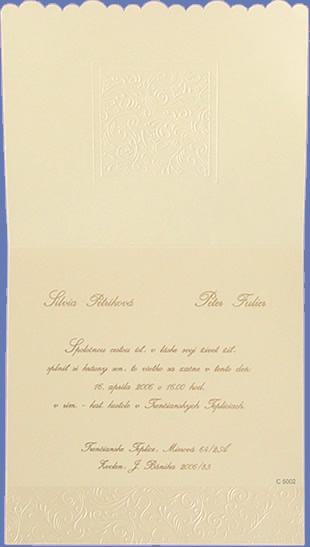 Silvia Petríková Peter Fulier
Spoločnou cestou ísť, v láske svoj život žiť,
splniť si krásny sen, to všetko sa začne v tento deň
16. apríla 2006 o 16.00 hod.
v rím. - kat. kostole v Trenčianskych Tepliciach.
Trenčianske Teplice, Mierová 64/25A
Zvolen, J. Bánika 2006/33
C 5002